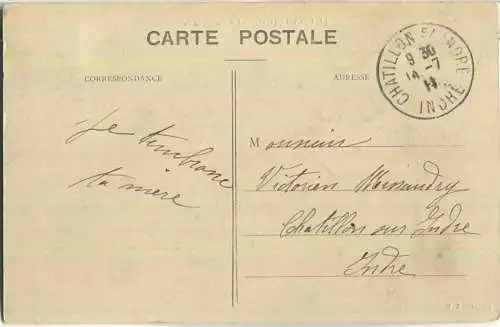 CARTE POSTALE
CORRESPONDANCE
ADRESSE
CHATILLON S/ INDRE
9 30
14 -7
14
INDRE
Je t'embrasse
ta mère
Monsieur
Victorien
Chatillon sur Indre
Indre